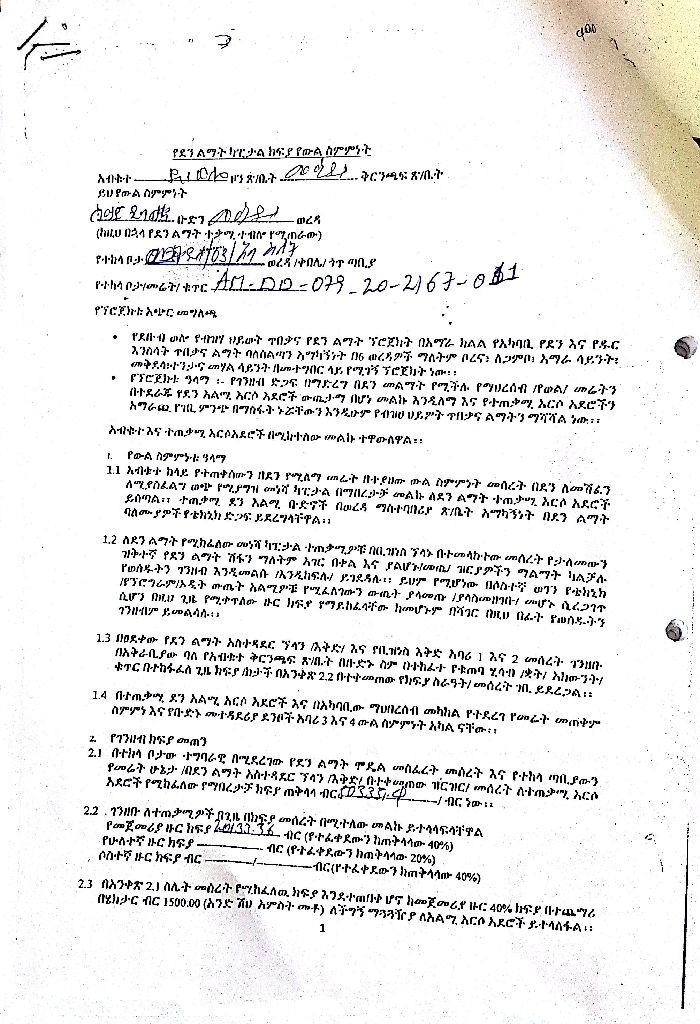 የደን ልማት ካፒታል ክፍያ የውል ስምምነት
አብቁተ ዞን ጽ/ቤት መቅደላ ቅርንጫፍ ጽ/ቤት
ይህ የውል ስምምነት
ቡድን መቅደላ ወረዳ
(ከዚህ በኋላ የደን ልማት ተቃሚ ተብሎ የሚጠራው)
የተከላ ቦታ ወረዳ /ቀበሌ/ ጎጥ ጣቢያ
የተከላ ቦታ/መሬት/ ቁጥር AM-DD-079-20-2167-011
የፕሮጀክቱ አጭር መግለጫ
• የደቡብ ወሎ የብዝሃ ህይወት ጥበቃና የደን ልማት ፕሮጀክት በአማራ ክልል የአካባቢ የደን እና የዱር
እንስሳት ጥበቃና ልማት ባለስልጣን አማካኝነት በ6 ወረዳዎች ማለትም ቦረና፣ ለጋምቦ፣ አማራ ሳይንት፣
መቅደላ፣ተንታና መሃል ሳይንት በመተግበር ላይ የሚገኝ ፕሮጀክት ነው፡፡
• የፕሮጀክቱ ዓላማ ፡- የገንዘብ ድጋፍ በማድረግ በደን መልማት የሚችሉ የማህበረሰብ /የወል/ መሬትን
በተደራጁ የደን አልሚ አርሶ አደሮች ውጤታማ በሆነ መልኩ እንዲለማ እና የተጠቃሚ አርሶ አደሮችን
አማራጭ የገቢ ምንጭ በማስፋት ኑሯቸውን እንዲሁም የብዝሀ ህይዎት ጥበቃና ልማትን ማሻሻል ነው፡፡
አብቁተ እና ተጠቃሚ አርሶአደሮች በሚከተለው መልኩ ተዋውለዋል፡፡
1. የውል ስምምነቱ ዓላማ
1.1 አብቁተ ከላይ የተጠቀሰውን በደን የሚለማ መሬት በተያዘው ውል ስምምነት መሰረት በደን ለመሸፈን
ለሚያስፈልግ ወጭ የሚያግዝ መነሻ ካፒታል በማበረታቻ መልኩ ለደን ልማት ተጠቃሚ አርሶ አደሮች
ይሰጣል፡፡ ተጠቃሚ ደን አልሚ ቡድኖች በወረዳ ማስተባበሪያ ጽ/ቤት አማካኝነት በደን ልማት
ባለሙያዎች የቴክኒክ ድጋፍ ይደረግላቸዋል፡፡
1.2 ለደን ልማት የሚከፈለው መነሻ ካፒታል ተጠቃሚዎቹ በቢዝነስ ፕላኑ በተመላከተው መሰረት የታለመውን
ዝቅተኛ የደን ልማት ሽፋን ማለትም አገር በቀል እና ያልሆኑ/መጤ/ ዝርያዎችን ማልማት ካልቻሉ
የወሰዱትን ገንዘብ እንዲመልሱ /እንዲከፍሉ/ ይገደዳሉ፡፡ ይህም የሚሆነው በሶስተኛ ወገን የቴክኒክ
/የፕሮግራም/ኦዲት ውጤት አልሚዎቹ የሚፈለገውን ውጤት ያላመጡ /ያላስመዘገቡ/ መሆኑ ሲረጋገጥ
ሲሆን በዚህ ጊዜ የሚቀጥለው ዙር ክፍያ የማይከፈላቸው ከመሆኑም በሻገር በዚህ በፊት የወሰዱትን
ገንዘብም ይመልሳሉ፡፡
1.3 በፀደቀው የደን ልማት አስተዳደር ፕላን /እቅድ/ እና የቢዝነስ እቅድ አባሪ 1 እና 2 መሰረት ገንዘቡ
በአቅራቢያው ባለ የአብቁተ ቅርንጫፍ ጽ/ቤት በቡድኑ ስም በተከፈተ የቁጠባ ሂሳብ /ቋት/ አካውንት/
ቁጥር በተከፋፈለ ጊዜ ክፍያ /ከታች በአንቀጽ 2.2 በተቀመጠው የክፍያ ስራዓት/ መሰረት ገቢ ይደረጋል፡፡
1.4 በተጠቃሚ ደን አልሚ አርሶ አደሮች እና በአካባቢው ማህበረሰብ መካከል የተደረገ የመሬት መጠቀም
ስምምነት እና የቡድኑ መተዳደሪያ ደንቦች አባሪ 3 እና 4 ውል ስምምነት አካል ናቸው፡፡
2. የገንዘብ ክፍያ መጠን
2.1 በተከላ ቦታው ተግባራዊ በሚደረገው የደን ልማት ሞዴል መስፈረት መሰረት እና የተከላ ጣቢያውን
የመሬት ሁኔታ /በደን ልማት አስተዳደር ፕላን /እቅድ/ በተቀመጠው ዝርዝር/ መሰረት ለተጠቃሚ አርሶ
አደሮች የሚከፈለው የማበረታቻ ክፍያ ጠቅላላ ብር 50335.4 / ብር ነው፡፡
2.2 ገንዘቡ ለተጠቃሚዎች በጊዜ በክፍያ መሰረት በሚተለው መልኩ ይተላለፍላቸዋል
የመጀመሪያ ዙር ክፍያ 20133.36 ብር (የተፈቀደውን ከጠቅላላው 40%)
የሁለተኛ ዙር ክፍያ ብር (የተፈቀደውን ከጠቅላላው 20%)
ሶስተኛ ዙር ክፍያ ብር / ብር(የተፈቀደውን ከጠቅላላው 40%)
2.3 በአንቀጽ 2.1 ስሌት መሰረት የሚከፈለዉ ክፍያ እንደተጠበቀ ሆኖ ከመጀመሪያ ዙር 40% ክፍያ በተጨማሪ
በሄክታር ብር 1500.00 (አንድ ሽህ አምስት መቶ) ለችግኝ ማጓጓዥያ ለአልሚ አርሶ አደሮች ይተላለፋል፡፡
1